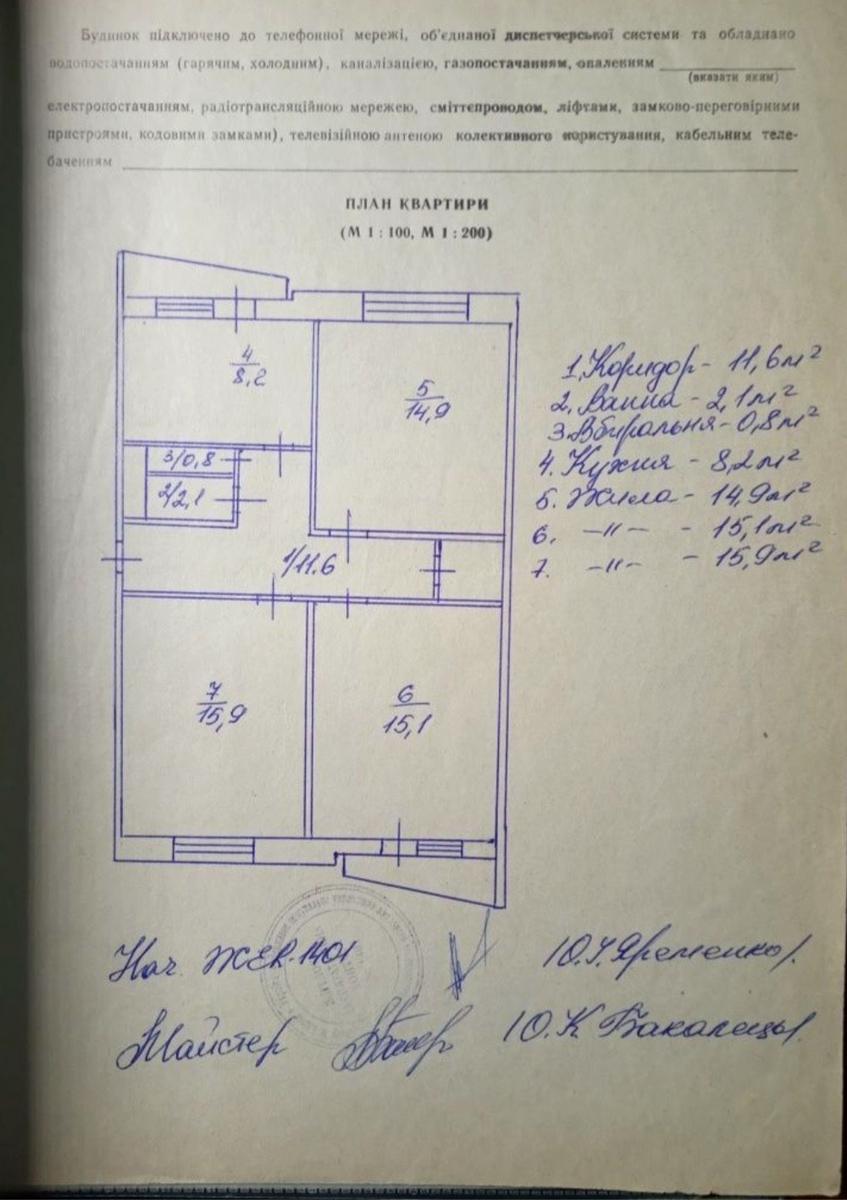 Будинок підключено до телефонної мережі, об'єднаної диспетчерської системи та обладнано
водопостачанням (гарячим, холодним), каналізацією, газопостачанням, опаленням
(вказати яким)
електропостачанням, радіотрансляційною мережею, сміттєпроводом, ліфтами, замково-переговірними
пристроями, кодовими замками), телевізійною антеною колективного користування, кабельним теле-
баченням
ПЛАН КВАРТИРИ
(М 1 : 100, М 1 : 200)
4
8,2
5
14,9
3/0,8
2/2,1
1/11.6
7
15,9
6
15,1
1. Коридор - 11,6м²
2. Ванна - 2,1м²
3. Вбиральня - 0,8м²
4. Кухня - 8,2м²
5. Жила - 14,9м²
6. -"- - 15,1м²
7. -"- - 15,9м²
Нач. ЖЕК-1401 Ю.І.Яременко
Майстер Ю.К